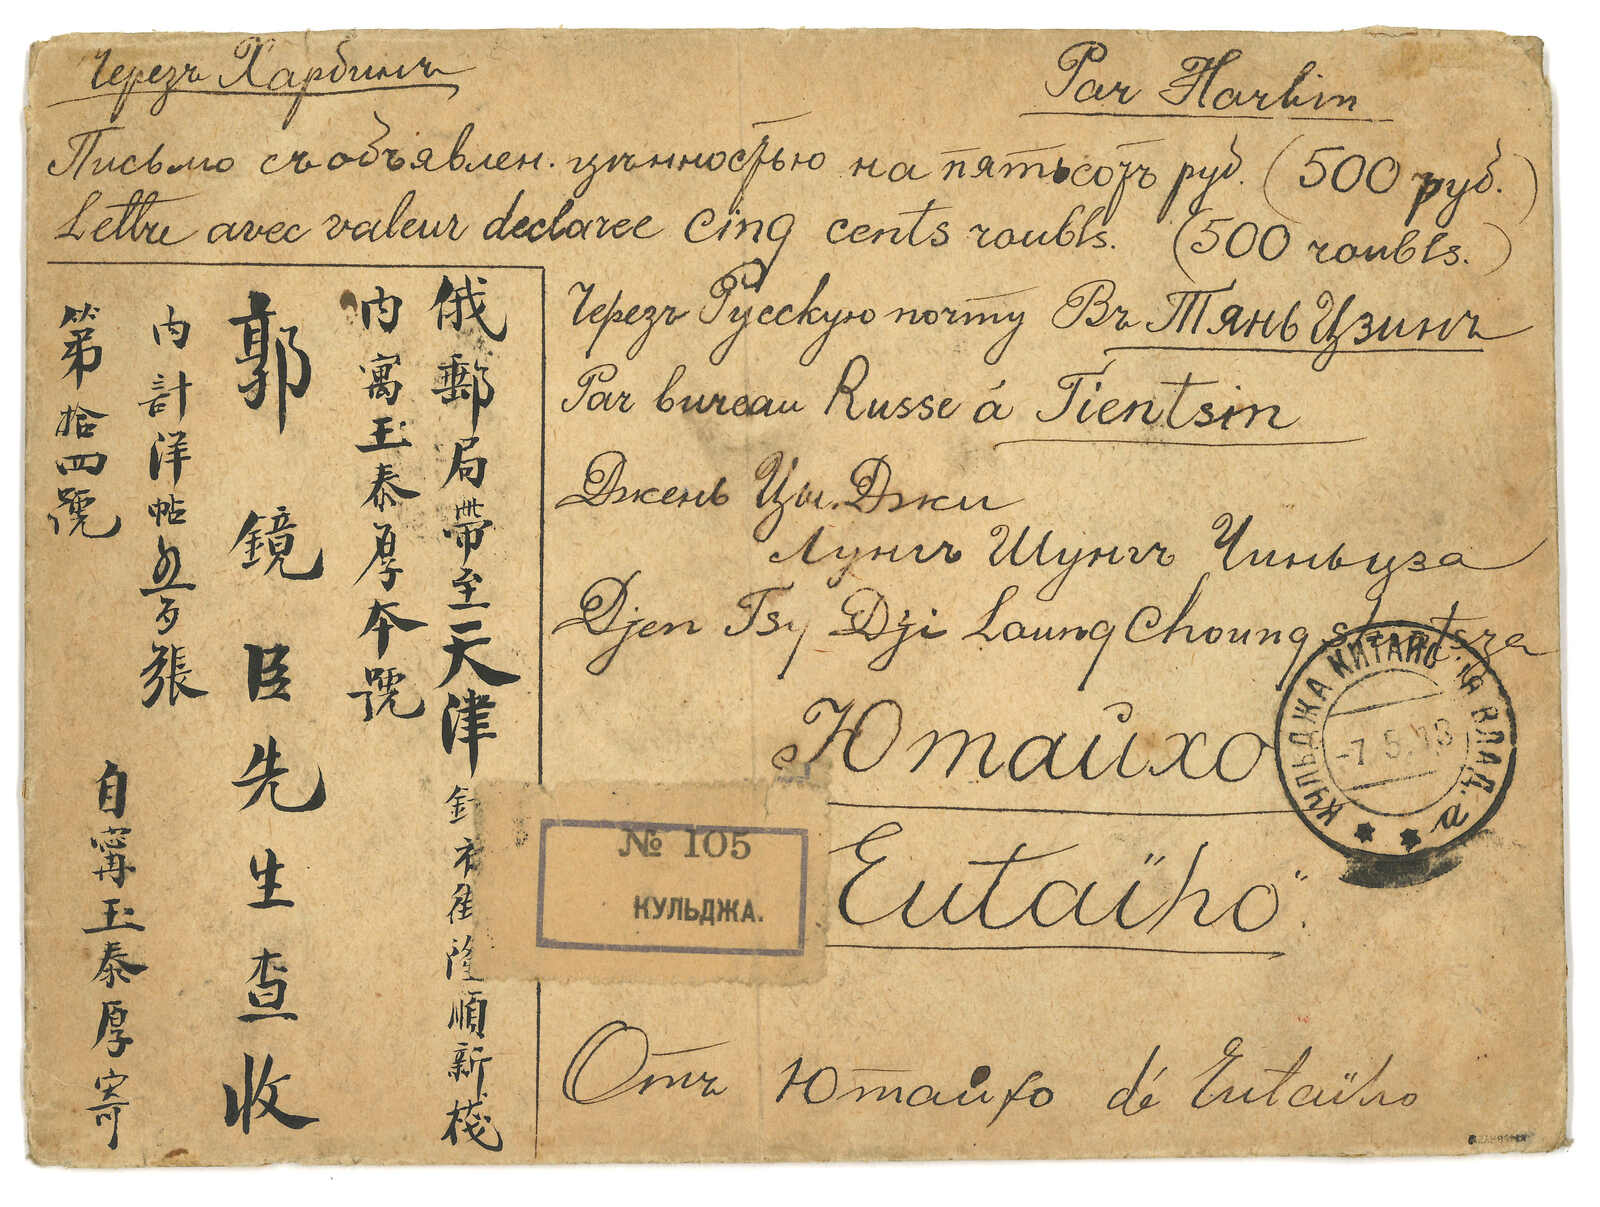 Черезъ Харбинъ
Par Harbin
Письмо съ объявлен. цѣнностью на пятьсотъ руб. (500 руб.)
Lettre avec valeur declaree Cinq cents roubls. (500 roubls.)
俄郵局帶至天津針市街隆順新棧
內寓玉泰厚本號
郭鏡臣先生查收
內計洋帖五百張
自甯玉泰厚寄
第拾四號
Черезъ Русскую почту Въ ТяньЦзинъ
Par bureau Russe á Tientsin
Джень Цы. Джи
Лунгъ Шунгъ Чиньцза
Djen Tsy Dji Loung Choung
Ютайхо
"Eutaïho"
КУЛЬДЖА КИТАЙС-КА ВЛАД. а
-7.5.13
№ 105
КУЛЬДЖА.
Отъ Ютайхо dé Eutaïho